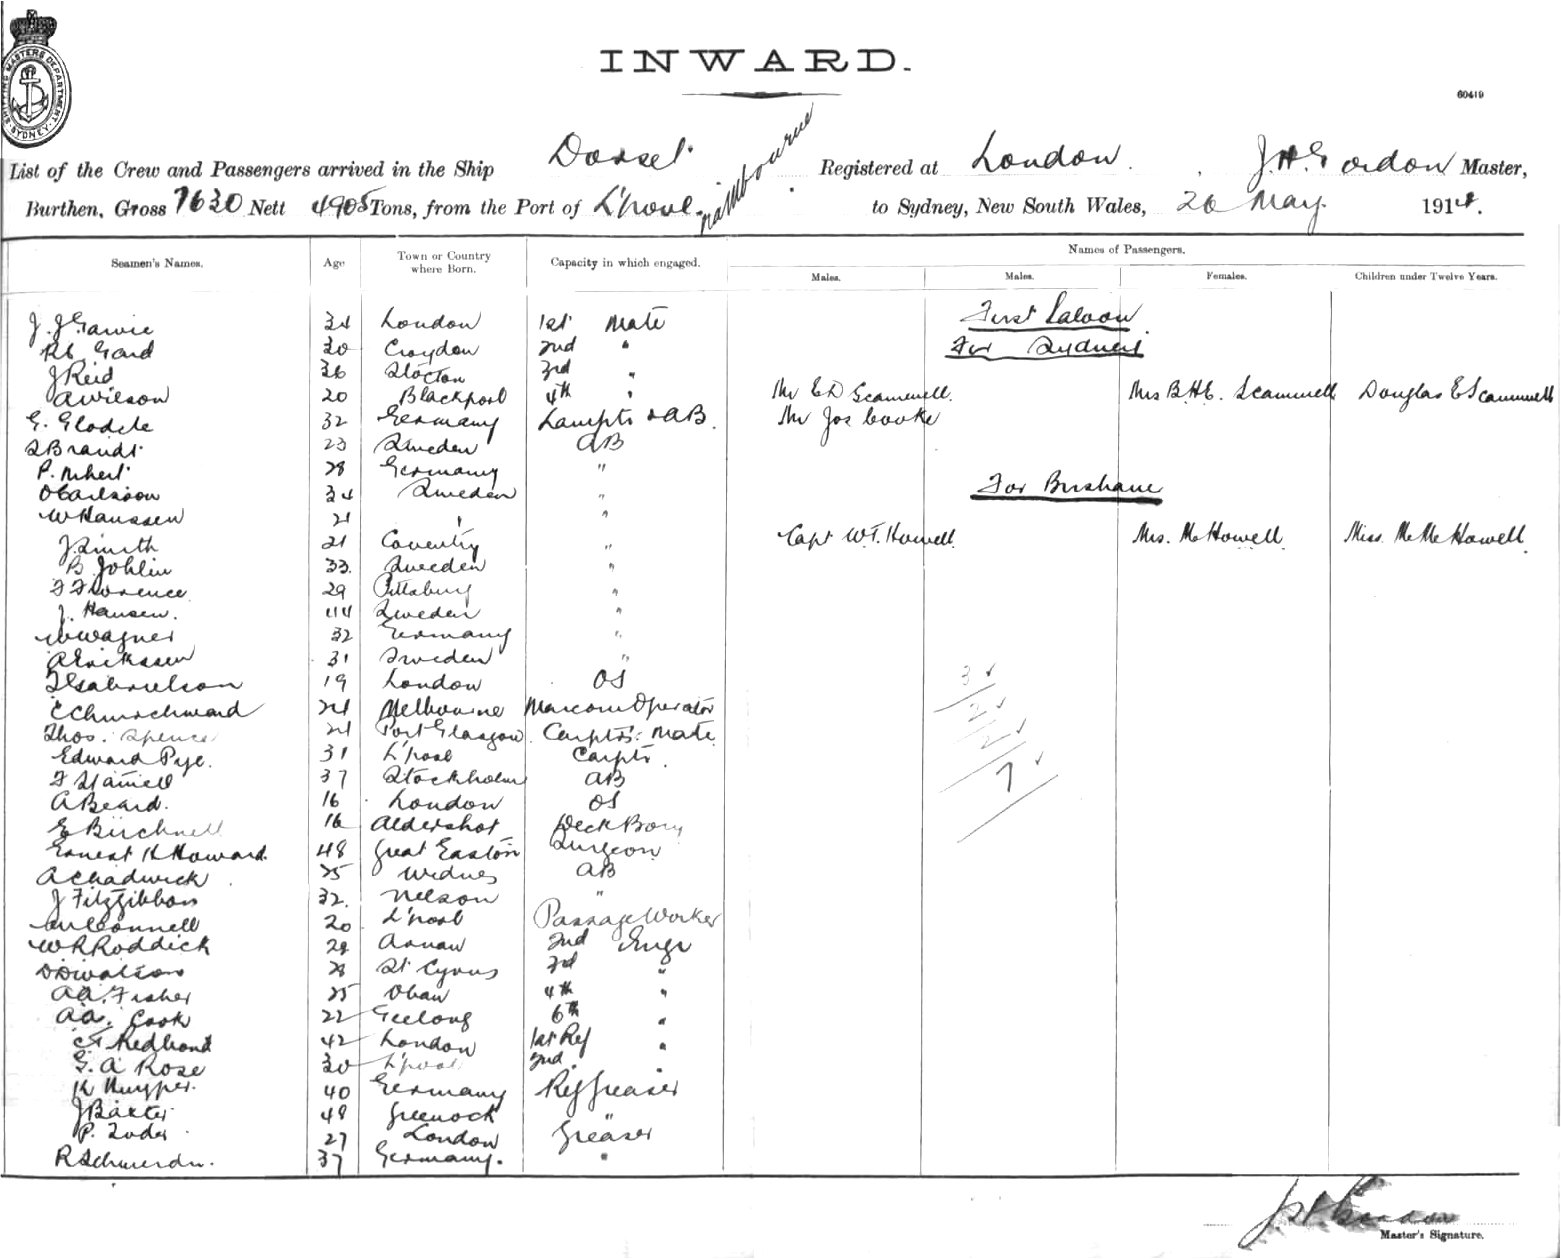 SHIPPING MASTERS DEPARTMENT · SYDNEY ·
INWARD.
60419
List of the Crew and Passengers arrived in the Ship Dorset Registered at London. J.H. Gordon Master,
Burthen, Gross 7630 Nett 4905 Tons, from the Port of L'pool to Sydney, New South Wales, 26 May. 1914.
Seamen's Names. Age Town or Country where Born. Capacity in which engaged. Names of Passengers.
Males. Males. Females. Children under Twelve Years.
First Saloon
J. J Garvie 34 London 1st Mate
For Sydney
Gard 30 Croydon 2nd "
J Reid 36 Stocton 3rd "
A Wilson 20 Blackpool 4th " Mr E D Scammell. Mrs B.H.E. Scammell Douglas E Scammell
E. 32 Germany Lamptr & AB. Mr Jos Cooke
Brandt 23 Sweden AB
P. 28 Germany "
O Carlsson 34 Sweden "
For Brisbane
W Hanssen 21 " "
J. Smith 21 Coventry " Capt W.T. Howell. Mrs. M Howell. Miss. M Mc Howell.
B Johlin 33. Sweden "
F Florence 29 Pittsburg "
J. Hansen. 44 Sweden "
W Wagner 32 Germany "
A Erikssen 31 Sweden "
Gabrielson 19 London OS
C Churchward 24 Melbourne Marconi Operator
Thos. Spence 21 Port Glasgow. Carptr's Mate
Edward Pye. 31 L'pool Carptr.
F 37 Stockholm AB
A Beard. 16 London OS
E Birchnell 16 Aldershot Deck Boy
Ernest H Howard. 48 Great Easton Surgeon
A Chadwick 25 Widnes AB
J Fitzgibbon 32. Nelson "
20 L'pool Passage Worker
W R Roddick 28 Annan 2nd Engr
D D Watson 28 St Cyrus 3rd "
A A. Fisher 25 Oban 4th "
A A. Cook 22 Geelong 6th "
C F Redbond 42 London 1st Ref "
G. A Rose 30 L'pool 2nd. "
K Kuyper. 40 Germany Ref Greaser
J Baxter 48 Greenock "
P. 27 London Greaser
R 37 Germany. "
3
2
2
7
Master's Signature.